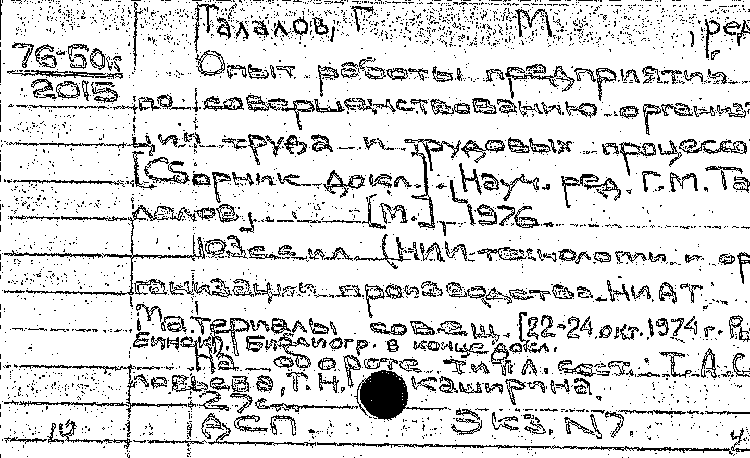 Талалов, Г. М., ред
76-50к Опыт работы предприятий
2015 по совершенствованию организа
ции труда и трудовых процессо
[Сборник докл.]. [Науч. ред. Г.М. Та
лалов]. [М.], 1976.
103 с. с ил. (НИИ технологии и ор
ганизации производства. НИАТ.
Материалы совещ. [22-24 окт. 1974 г.
Библиогр. в конце докл.
На обороте тит. л. сост.: Т.А. С
ловьева, Т.Н. Каширина.
27 см.
10 ДСП. Экз. N7.